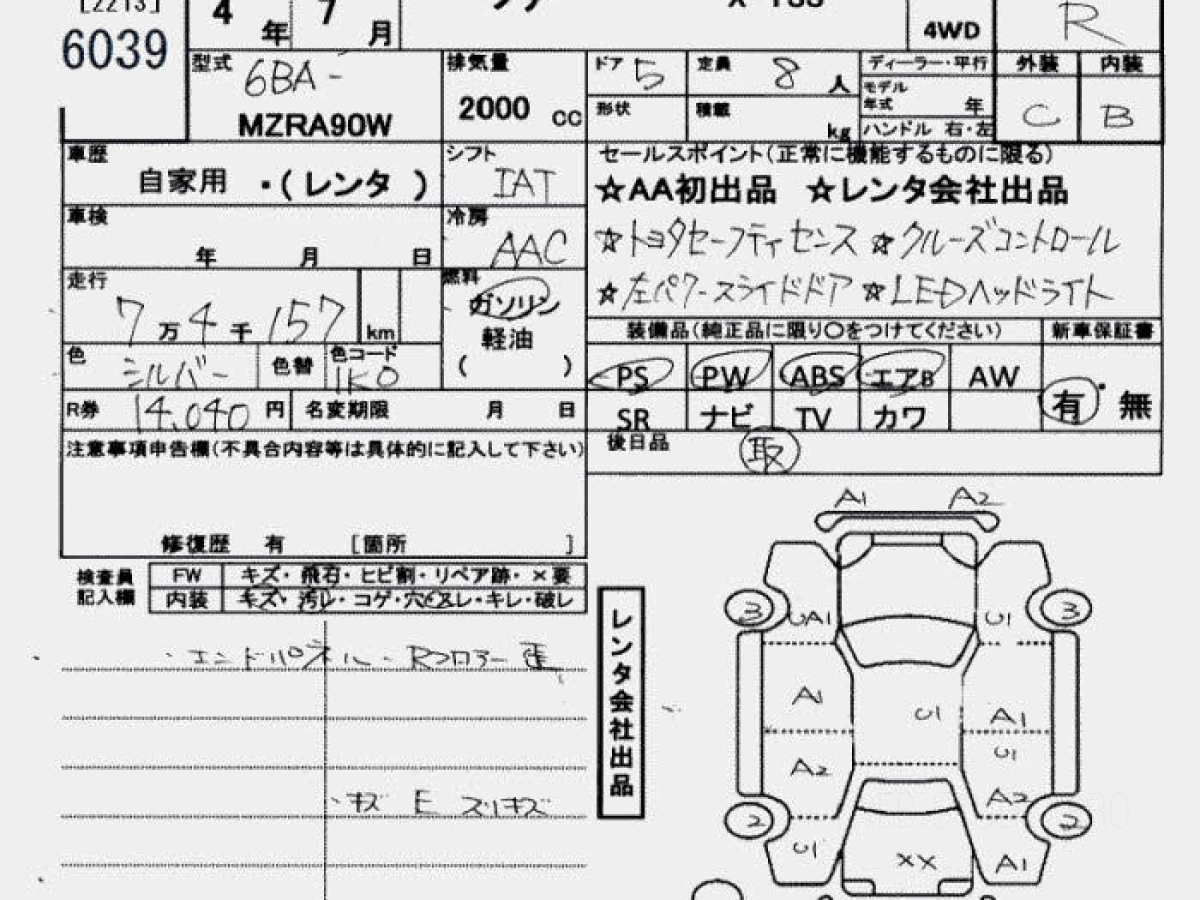 [2213]
6039
4 年 7 月
4WD
R
型式 6BA-
MZRA90W
排気量
2000 cc
ドア 5
定員 8 人
形状
積載
kg
ディーラー・平行
モデル
年式 年
ハンドル 右・左
外装 内装
C B
車歴
自家用 ・(レンタ )
シフト
IAT
車検
年 月 日
冷房
AAC
走行
7万4千157 km
燃料
ガソリン
軽油
( )
色 シルバー
色替
色コード
1K0
R券 14,040 円
名変期限 月 日
セールスポイント(正常に機能するものに限る)
☆AA初出品 ☆レンタ会社出品
☆トヨタセーフティセンス ☆クルーズコントロール
☆左パワースライドドア ☆LEDヘッドライト
装備品(純正品に限り○をつけてください)
新車保証書
PS PW ABS エアB AW
SR ナビ TV カワ
有・無
後日品 取
注意事項申告欄(不具合内容等は具体的に記入して下さい)
修復歴 有 [箇所 ]
検査員
記入欄
FW キズ・飛石・ヒビ割・リペア跡・×要
内装 キズ・汚レ・コゲ・穴・スレ・キレ・破レ
・エンドパネル・Rフロアー
・キズ E スリキズ
レンタ会社出品
A1 A2
3 UA1 U1 3
A1 U1 A1
U1
A2 A2
2 2
U1 XX A1